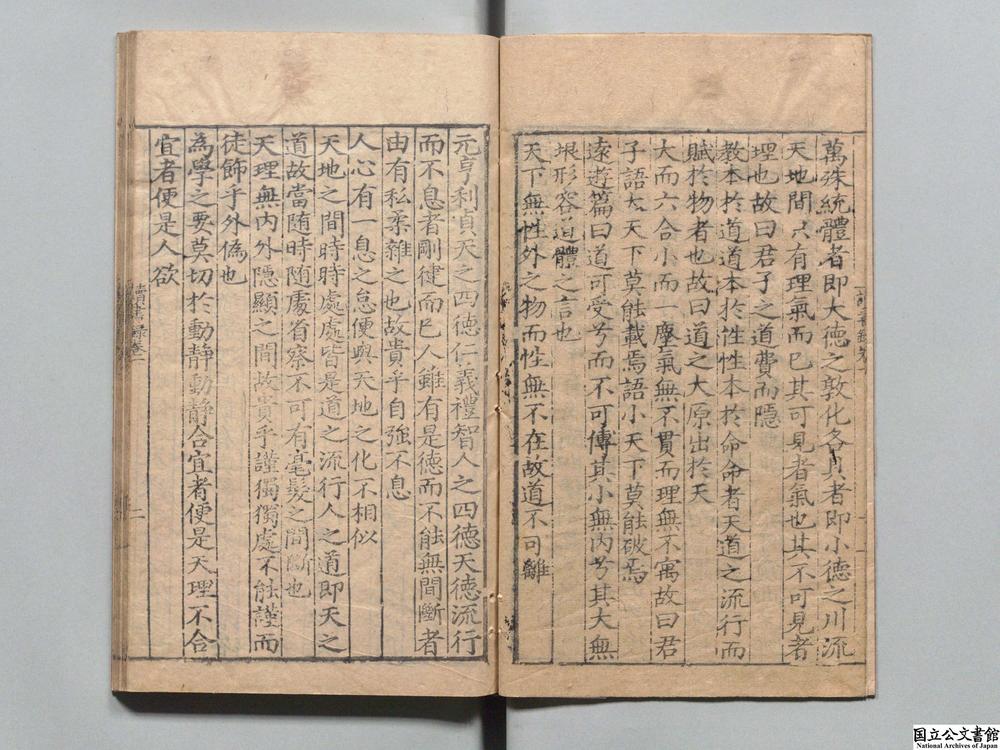 萬殊統體者即大德之敦化各具者即小德之川流
天地間只有理氣而已其可見者氣也其不可見者
理也故曰君子之道費而隱
教本於道道本於性性本於命命者天道之流行而
賦於物者也故曰道之大原出於天
大而六合小而一塵氣無不貫而理無不寓故曰君
子語大天下莫能載焉語小天下莫能破焉
遠遊篇曰道可受兮而不可傳其小無內兮其大無
垠形容道體之言也
天下無性外之物而性無不在故道不可離
元亨利貞天之四德仁義禮智人之四德天德流行
而不息者剛健而已人雖有是德而不能無間斷者
由有私柔雜之也故貴乎自強不息
人心有一息之怠便與天地之化不相似
天地之間時時處處皆是道之流行人之道即天之
道故當隨時随處省察不可有毫髮之間斷也
天理無內外隱顯之間故貴乎謹獨獨處不能謹而
徒飾乎外偽也
為學之要莫切於動靜動靜合宜者便是天理不合
宜者便是人欲
讀書錄卷一
二
国立公文書館
National Archives of Japan